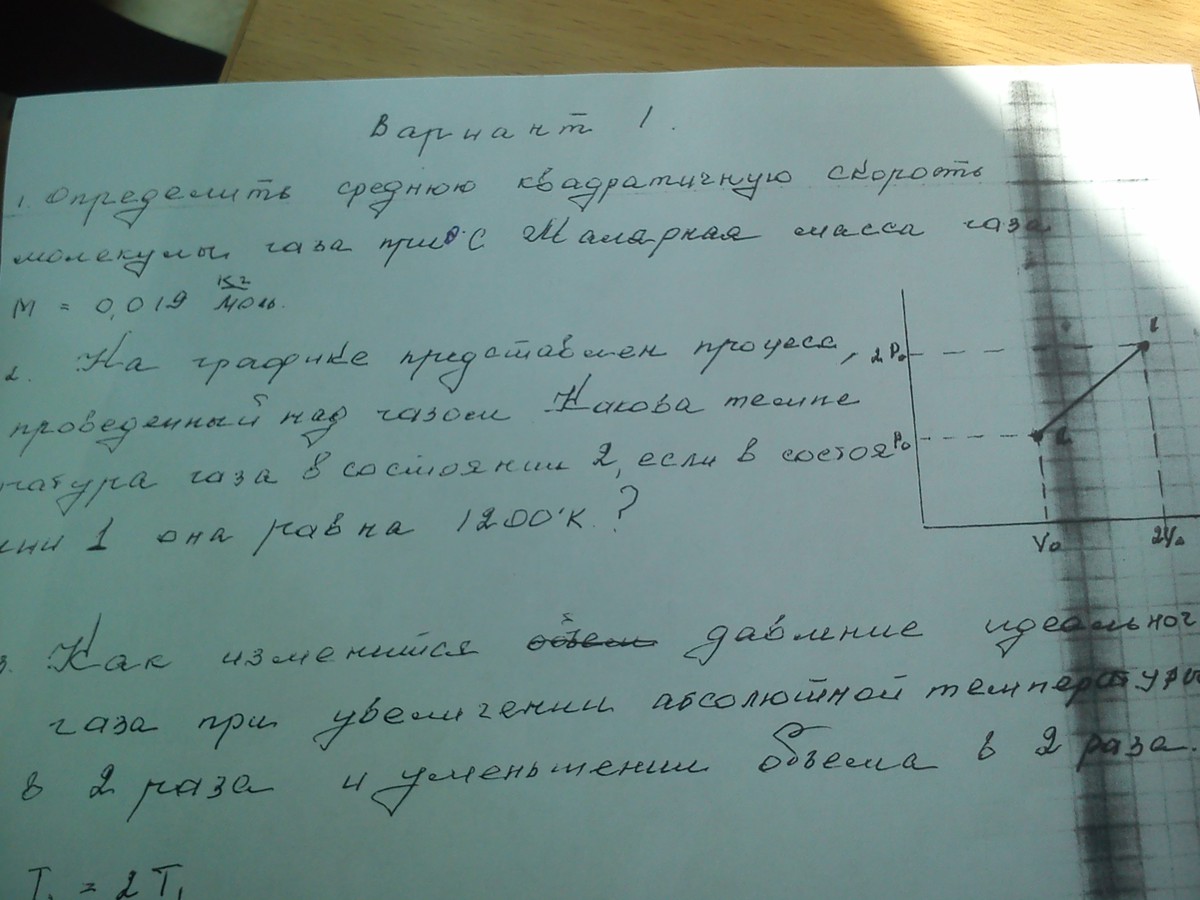 Вариант 1.
1. Определить среднюю квадратичную скорость
молекулы газа при 0°С Малярная масса газа
М = 0,019 кг/моль.
2. На графике представлен процесс,
проведенный над газом Какова темпе
ратура газа в состоянии 2, если в состоя
нии 1 она равна 1200°К.?
2P₀
P₀
1
2
V₀
2V₀
3. Как изменится объем давление идеальног
газа при увеличении абсолютной температуры
в 2 раза и уменьшении объема в 2 раза.
= 2T₁